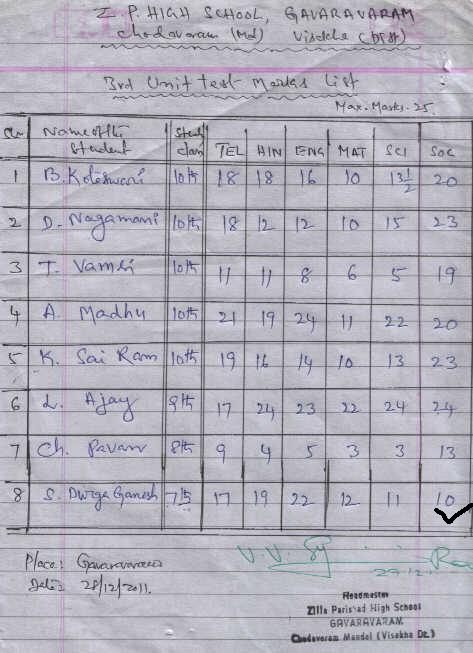 Z P. HIGH SCHOOL, GAVARAVARAM
Chodavaram (Md) Visakha (DISt)
3rd Unit test Marks List
Max. Marks. 25.
Name of the Student Stud class TEL HIN ENG MAT SCI SOC
1 B. Koteswari 10th 18 18 16 10 13 1/2 20
2 D. Nagamani 10th 18 12 12 10 15 23
3 T. Vamsi 10th 11 11 8 6 5 19
4 A. Madhu 10th 21 19 24 11 22 20
5 K. Sai Ram 10th 19 16 14 10 13 23
6 L. Ajay 9th 17 24 23 22 24 24
7 Ch. Pavan 8th 9 4 5 3 3 13
8 S. Durga Ganesh 7th 17 19 22 12 11 10
Place: Gavaravaram
Date: 28/12/2011.
Headmaster
Zilla Parishad High School
GAVARAVARAM
Chodavaram Mandal (Visakha Dt.)